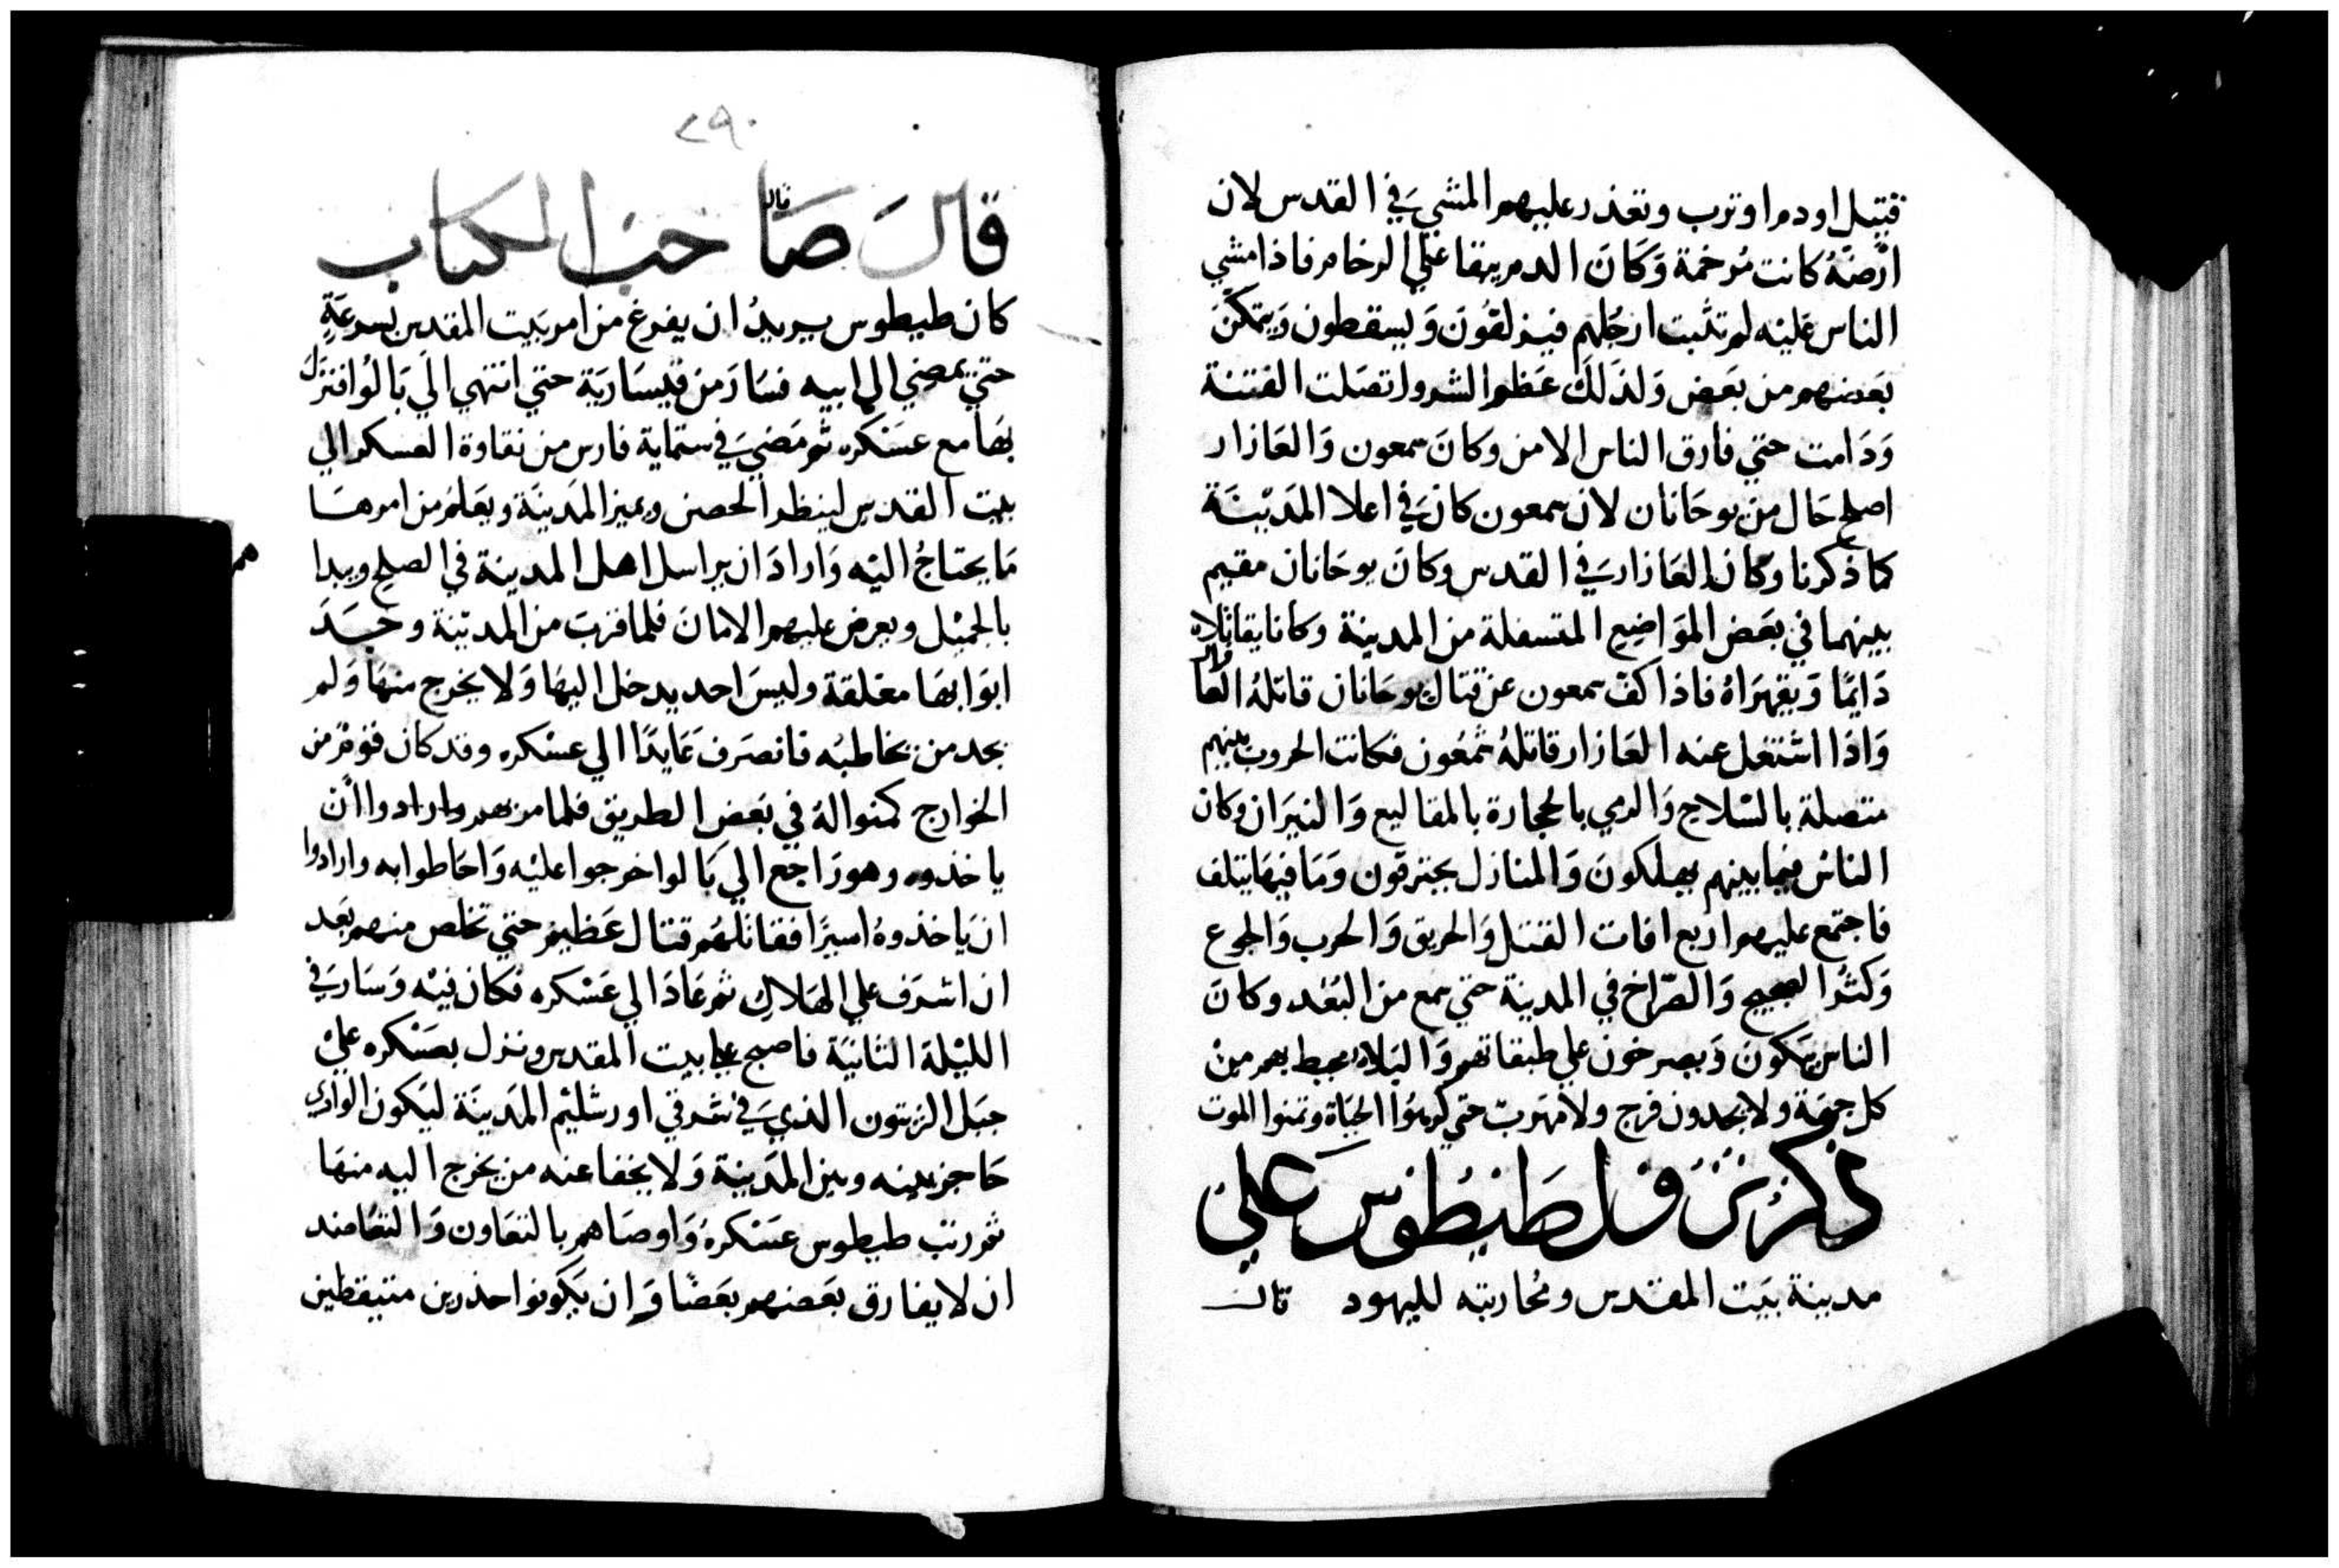 قتيل او دم او ترب وتعذر عليهم المشي في القدس لان
ارضه كانت مرخمة وكان الدم يبقا على الرخام فاذا مشي
الناس عليه لم تثبت ارجلهم فيزلقون ويسقطون ويتمكن
بعضهم من بعض ولذلك عظم الشر واتصلت الفتنة
ودامت حتي فارق الناس الامن وكان سمعون والعازار
اصلح حال من يوحانان لان سمعون كان في اعلا المدينة
كما ذكرنا وكان العازار في القدس وكان يوحانان مقيم
بينهما في بعض المواضيع المتسفلة من المدينة وكانا يقاتلاه
دايما ويقهراه فاذا كف سمعون عن قتال يوحانان قاتله العا
واذا اشتغل عنه العازار قاتله شمعون فكانت الحروب بينهم
متصلة بالسلاح والرمي بالحجارة بالمقاليع والنيران وكان
الناس فيما بينهم يهلكون والمنازل يحترقون وما فيها يتلف
فاجتمع عليهم اربع افات القتل والحريق والحرب والجوع
وكثر الضجيج والصراخ في المدينة حتي سمع من البعد وكان
الناس يبكون ويصرخون علي طبقاتهم والبلاء محيط بهم من
كل جهة ولا يجدون فرج ولا مهرب حتي كرهوا الحياة وتمنوا الموت
ذكر نزول طيطوس علي
مدينة بيت المقدس ومحاربته لليهود قال
٢٩٠
قال صاحب الكتاب
قال
كان طيطوس يريد ان يفرغ من امر بيت المقدس بسرعة
حتي يمضي الي ابيه فسار من قيسارية حتي انتهي الي بالوا فنزل
بها مع عسكره ثم مضي في ستماية فارس من نقاوة العسكر الي
بيت القدس لينظر الحصن ويميز المدينة ويعلم من امرها
ما يحتاج اليه واراد ان يراسل اهل المدينة في الصلح ويبدا
بالجميل ويعرض عليهم الامان فلما قرب من المدينة وجد
ابوابها مغلقة وليس احد يدخل اليها ولا يخرج منها ولم
يجد من يخاطبه فانصرف عايدا الي عسكره وقد كان قوم من
الخوارج كمنوا له في بعض الطريق فلما مر بهم وارادوا ان
ياخذوه وهو راجع الي بالوا خرجوا عليه واحاطوا به وارادوا
ان ياخذوه اسيرا فقاتلهم قتال عظيم حتي تخلص منهم بعد
ان اشرف علي الهلاك ثم عاد الي عسكره فكان فيه وسار في
الليلة الثانية فاصبح علي بيت المقدس ونزل بعسكره علي
جبل الزيتون الذي في شرقي اورشليم المدينة ليكون الوادي
حاجز بينه وبين المدينة ولا يخفا عنه من يخرج اليه منها
ثم رتب طيطوس عسكره واوصاهم بالتعاون والتعاضد
ان لا يفارق بعضهم بعضا وان يكونوا حذرين متيقظين